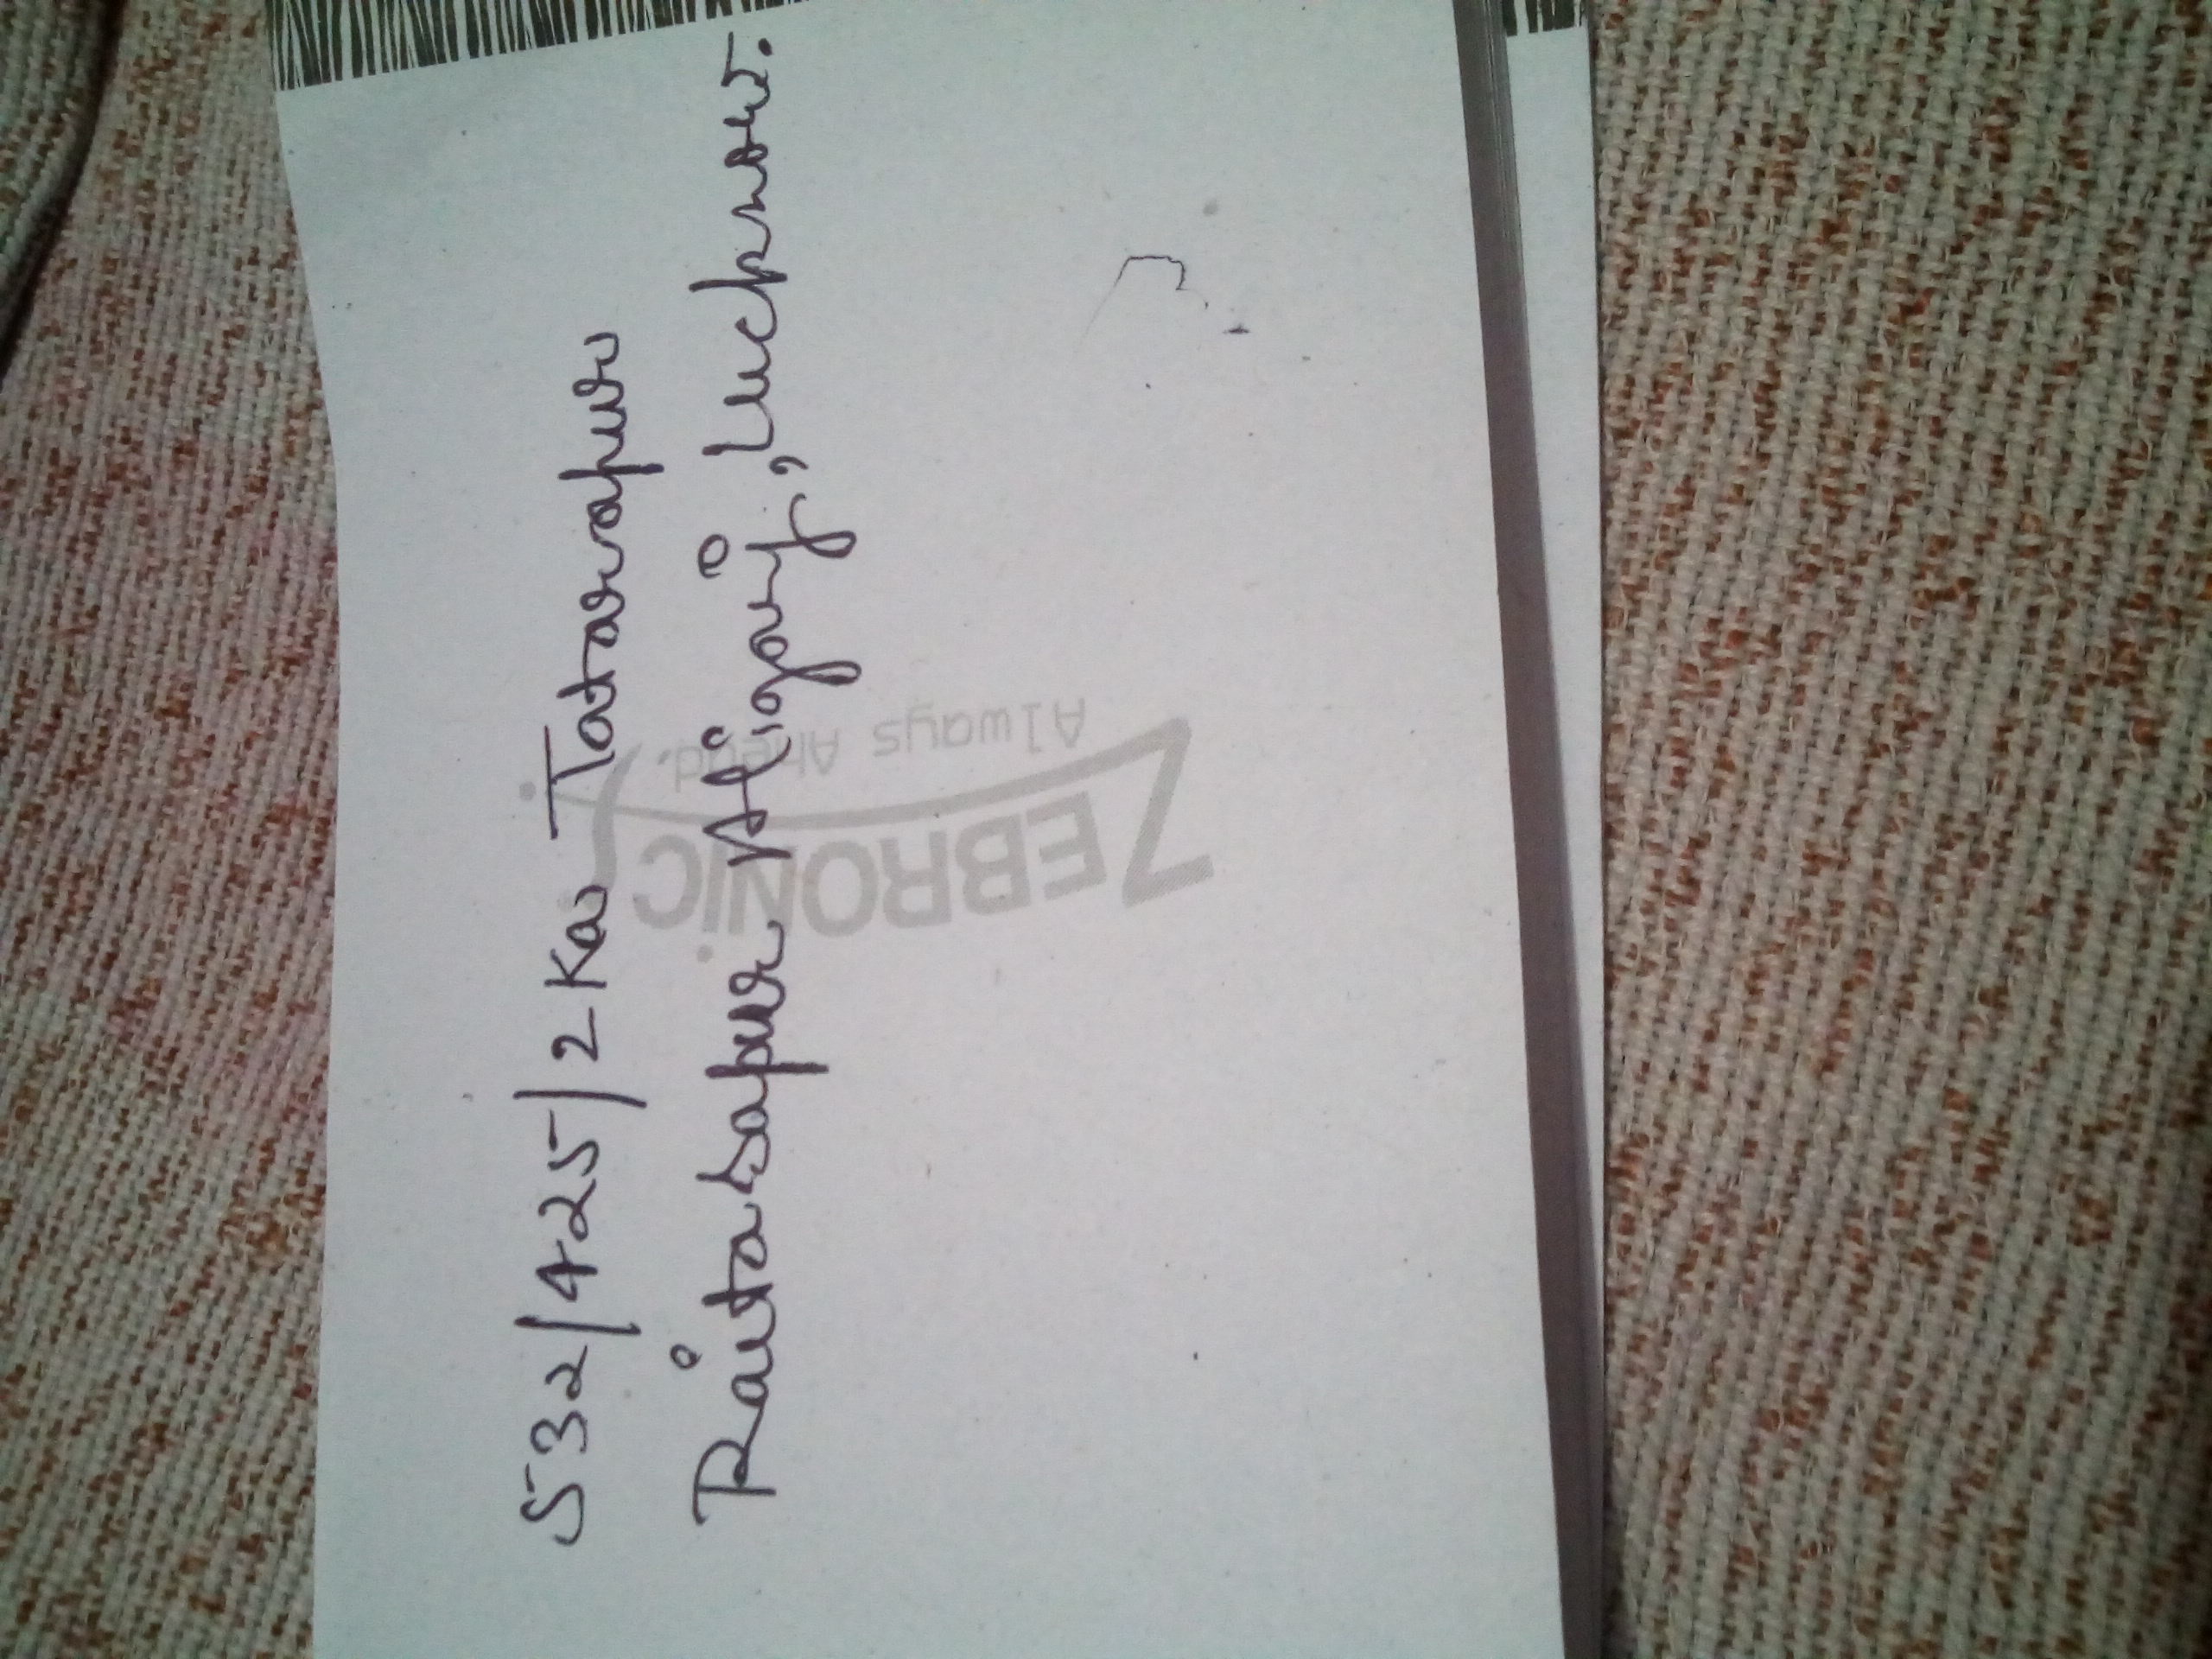 532/425/2Ka Tatarapur
Raitasapur Aliganj, Lucknow.
ZEBRONICS
Always Ahead.